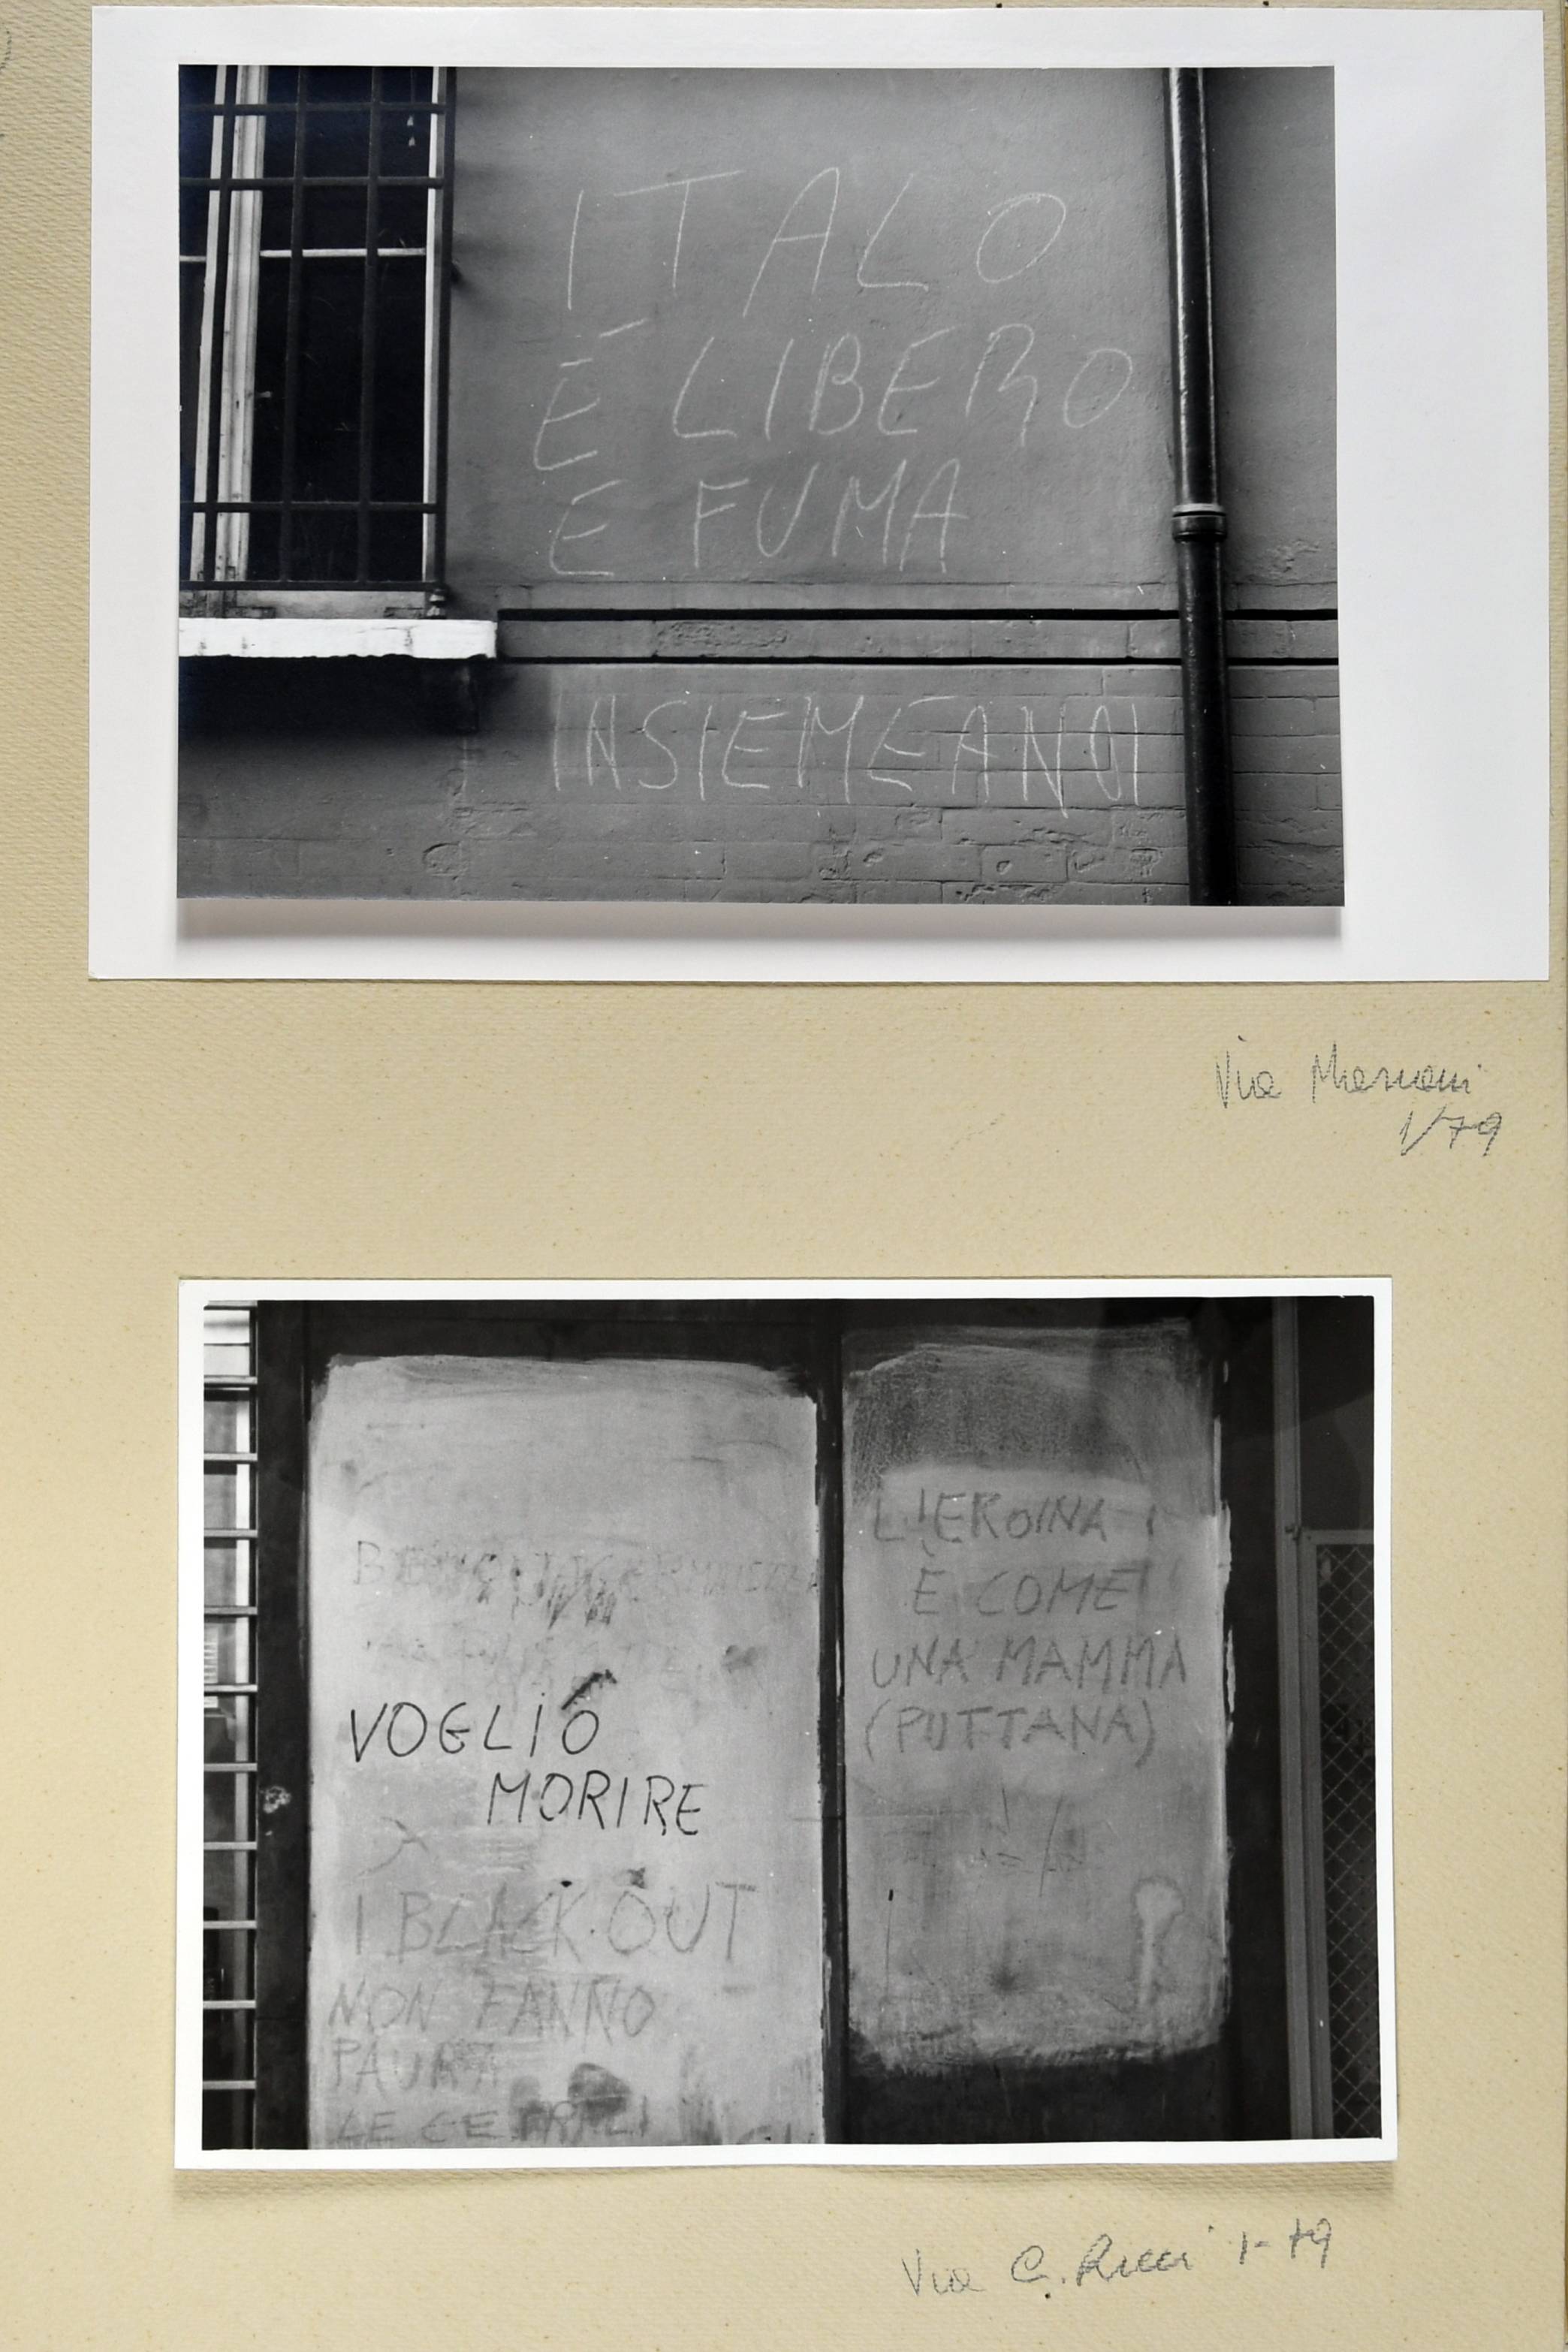 ITALO
É LIBERO
E FUMA
INSIEMEANOI
1/79
VOGLIO
MORIRE
I BLACK-OUT
NON FANNO
PAURA
LE CE
L'EROINA
È COME
UNA MAMMA
(PUTTANA)
Via C. Ricci 1-79